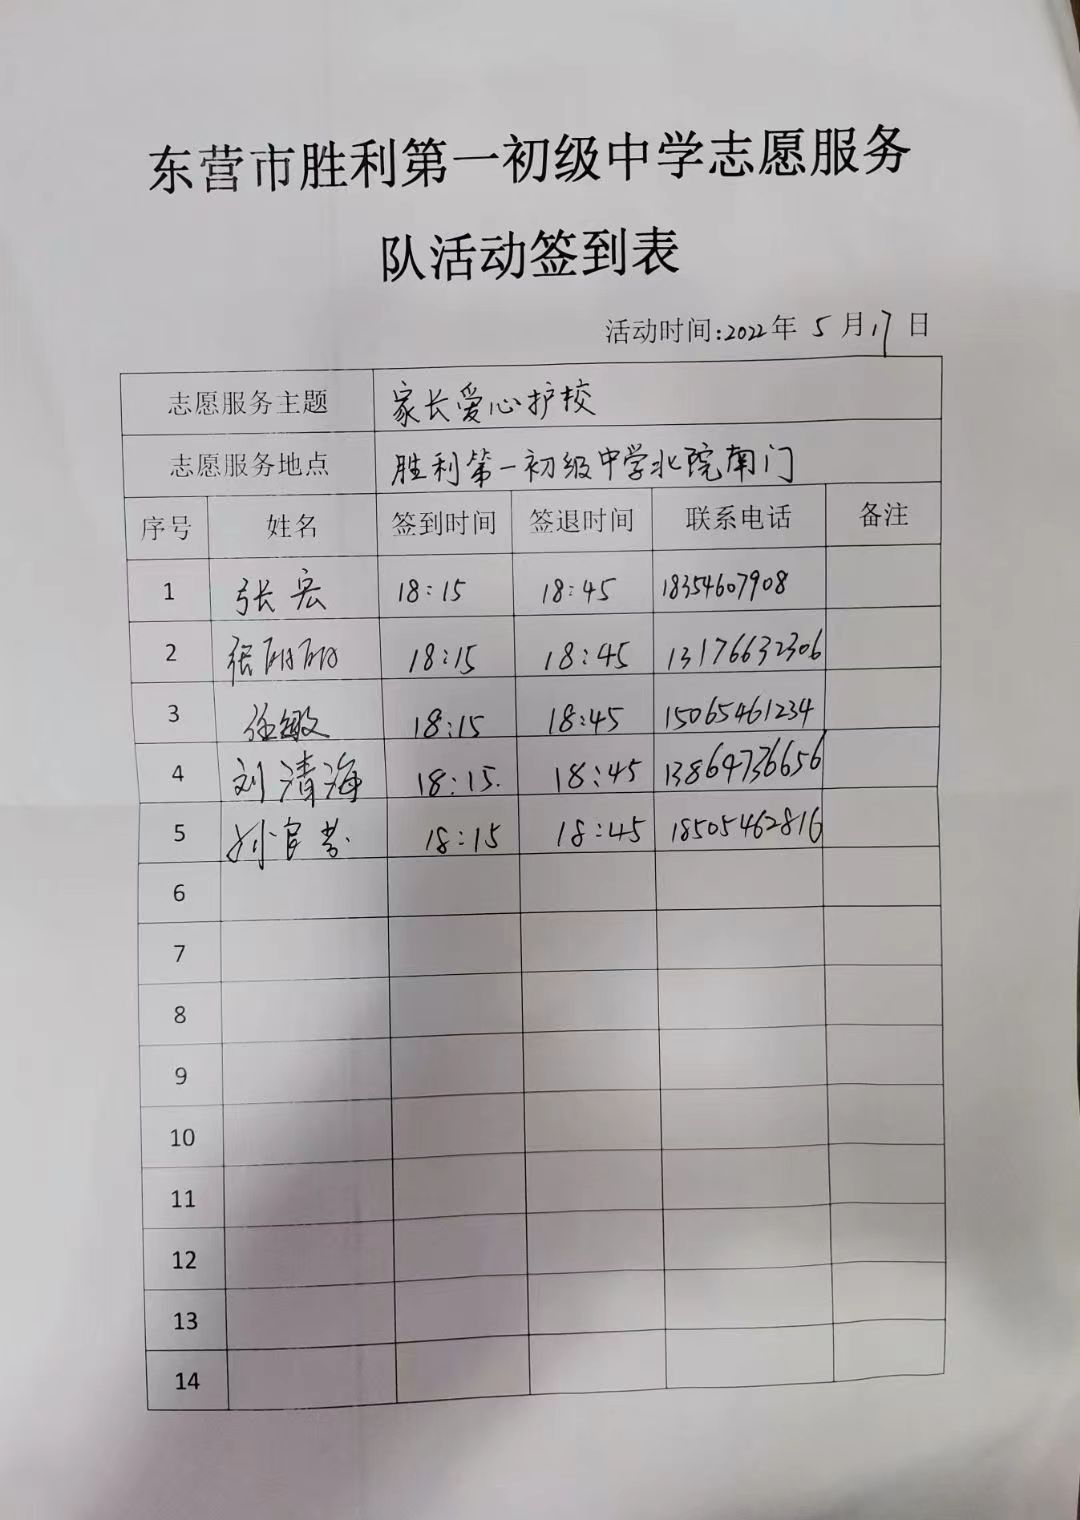 东营市胜利第一初级中学志愿服务
队活动签到表
活动时间:2022年 5 月17 日
志愿服务主题 家长爱心护校
志愿服务地点 胜利第一初级中学北院南门
序号 姓名 签到时间 签退时间 联系电话 备注
1 张宏 18:15 18:45 18354607908
2 张丽丽 18:15 18:45 13176632306
3 任敏 18:15 18:45 15065461234
4 刘清海 18:15. 18:45 13864736656
5 孙 18:15 18:45 18505462816
6
7
8
9
10
11
12
13
14